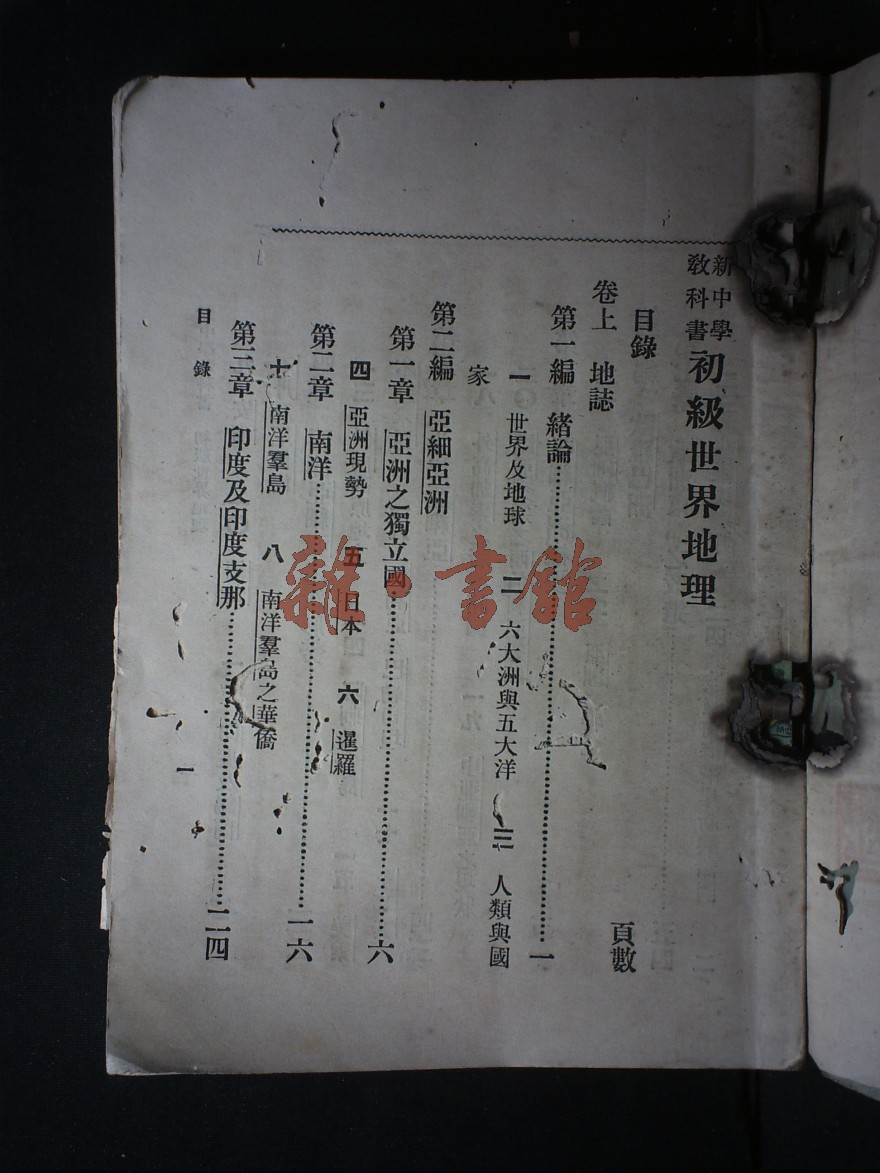 新中學
教科書
初級世界地理
目錄
頁數
卷上 地誌
第一編 緒論……一
一 世界及地球 二 六大洲與五大洋 三 人類與國
家
第二編 亞細亞洲
第一章 亞洲之獨立國……六
四 亞洲現勢 五 日本 六 暹羅
第二章 南洋……一六
南洋羣島 八 南洋羣島之華僑
第三章 印度及印度支那……二四
目錄
一
雜·書館